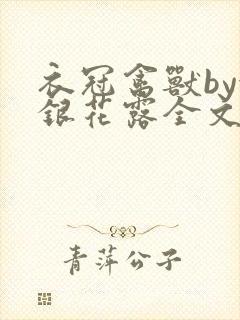 衣冠禽獸by
銀花露全文
青萍公子